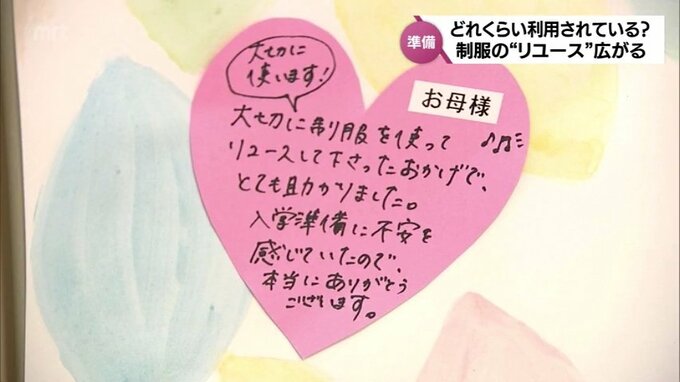 どれくらい利用されている?
準備
制服の“リユース”広がる
大切に
使います!
お母様
大切に制服を使って
リユースして下さったおかげで、
とても助かりました。
入学準備に不安を
感じていたので、
本当にありがとう
ございます。